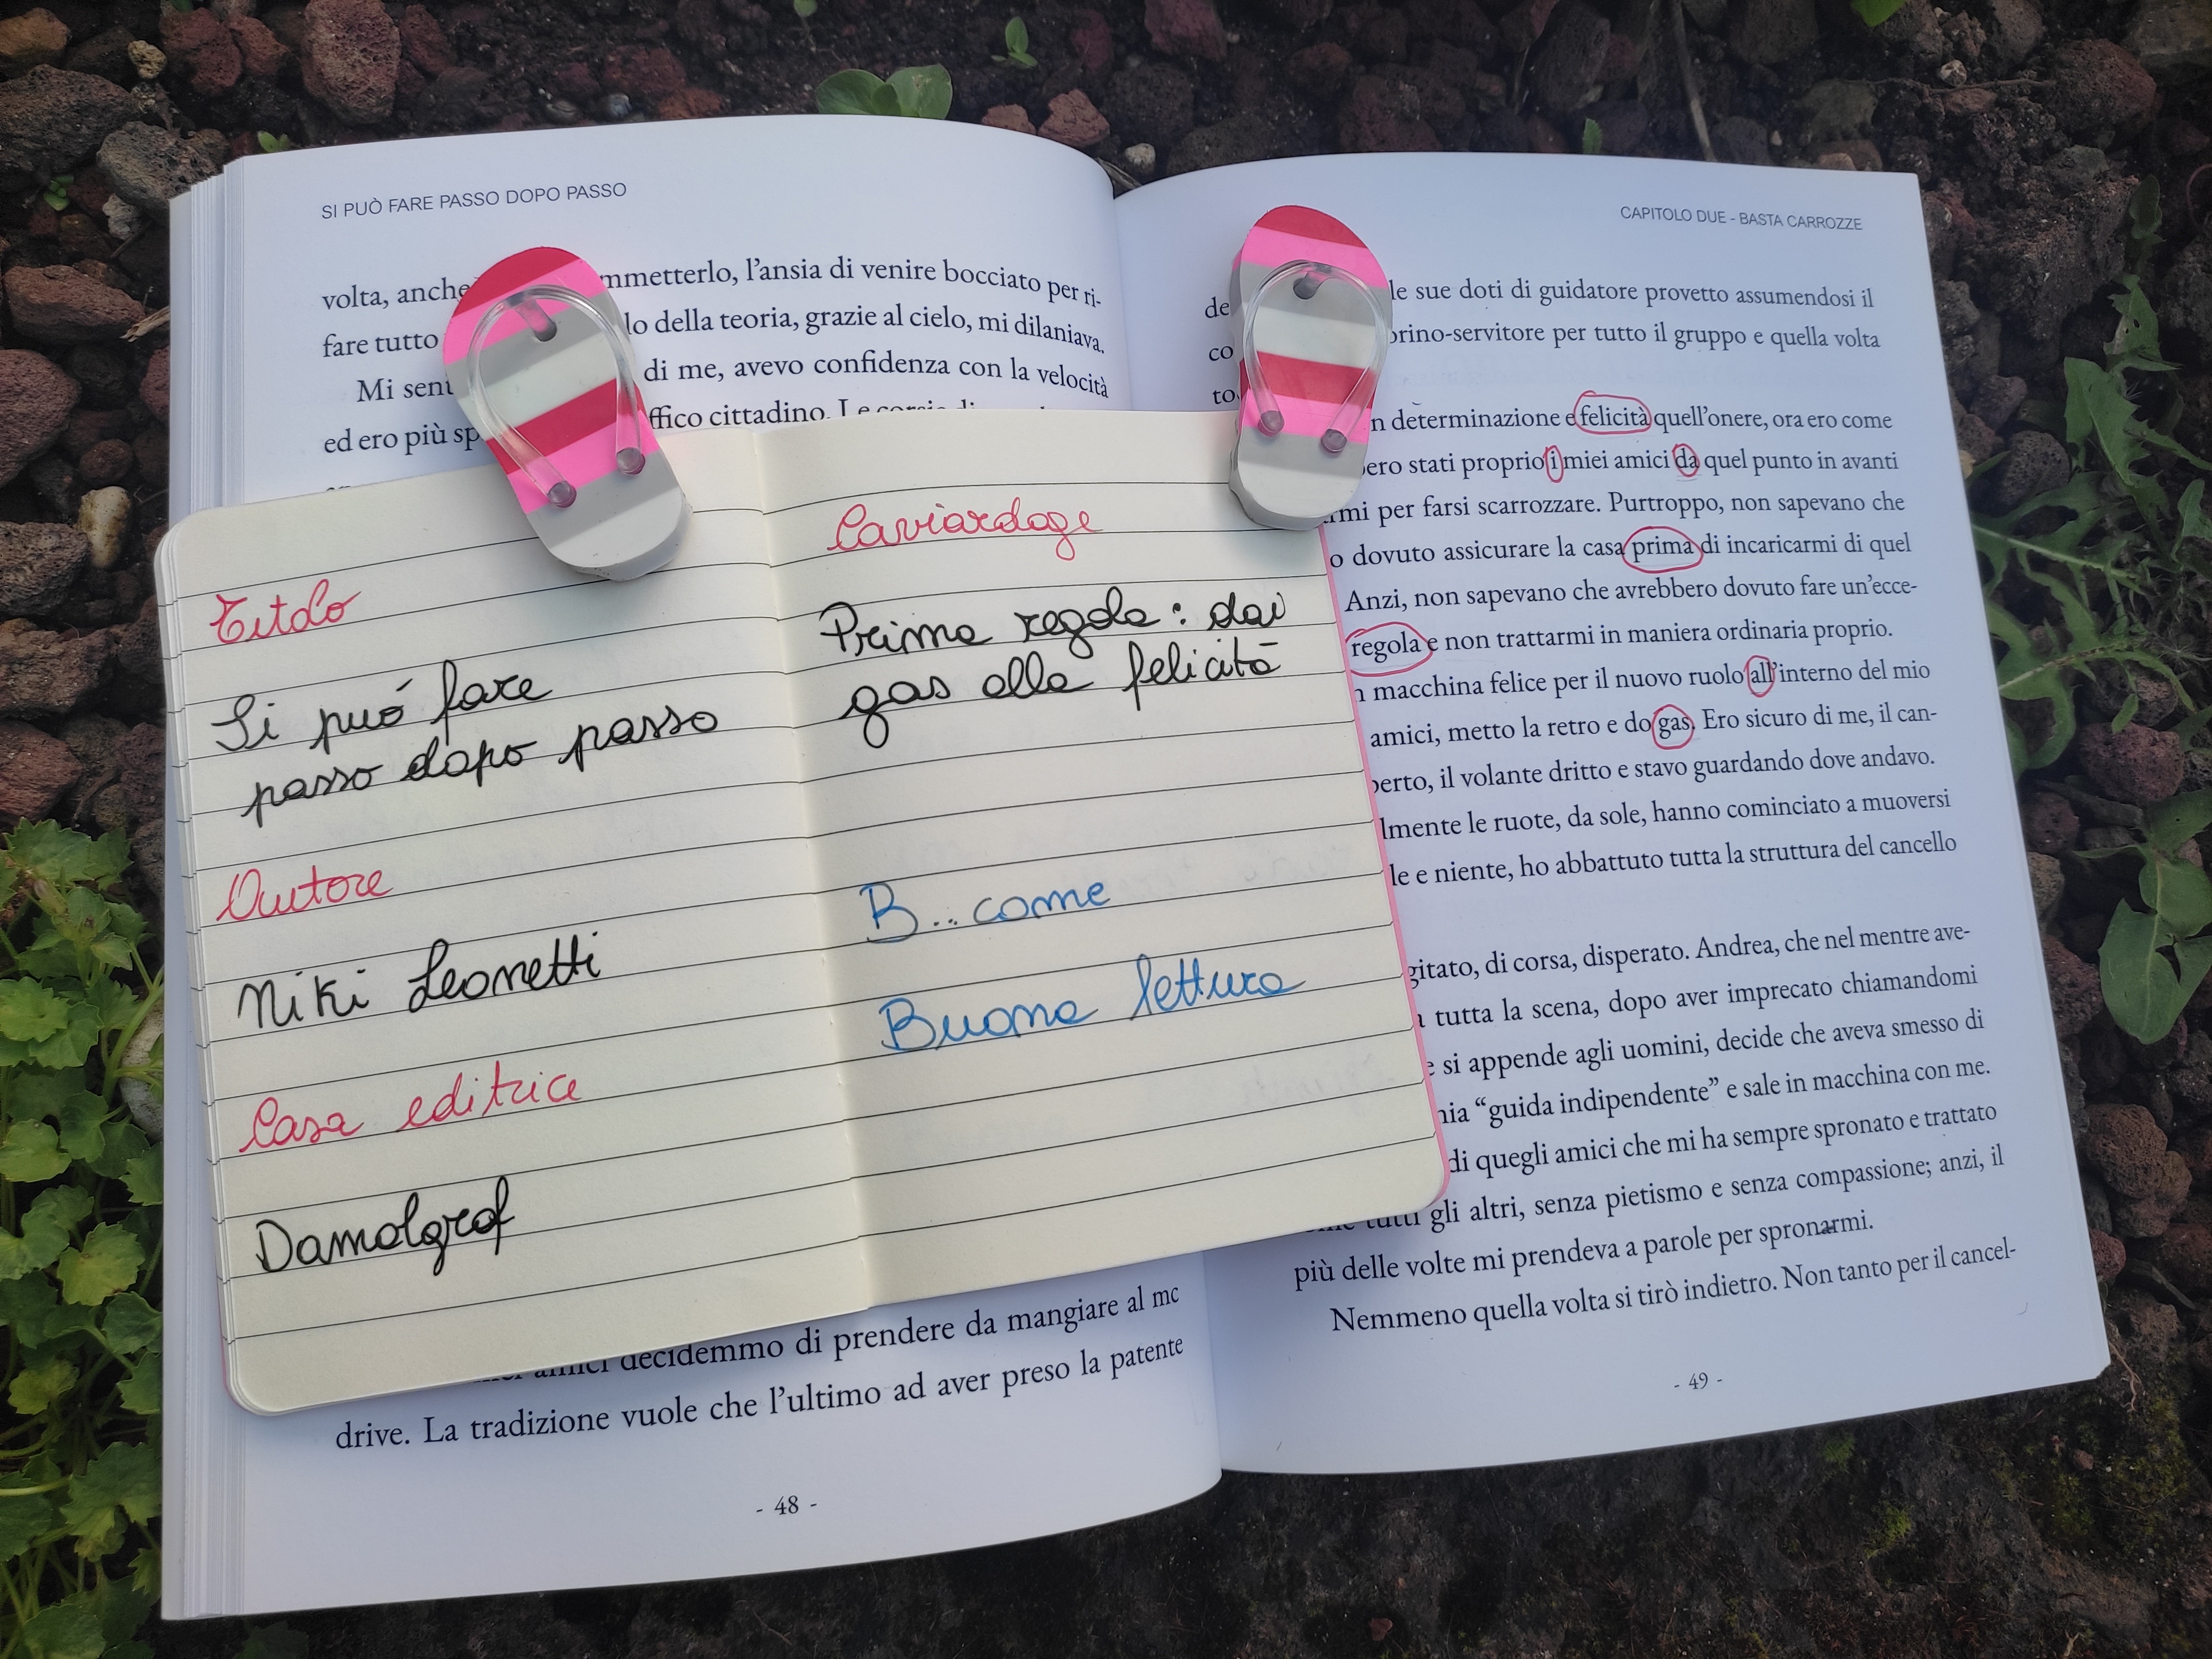 SI PUÒ FARE PASSO DOPO PASSO
volta, anche mmetterlo, l'ansia di venire bocciato per ri-
fare tutto lo della teoria, grazie al cielo, mi dilaniava.
Mi sent di me, avevo confidenza con la velocità
ed ero più sp ffico cittadino. Le
Titolo
Si può fare
passo dopo passo
Autore
Niki Leonetti
Casa editrice
Damolgraf
Caviardage
Prima regola: dai
gas alla felicità
B...come
Buona lettura
decidemmo di prendere da mangiare al mc
drive. La tradizione vuole che l'ultimo ad aver preso la patente
- 48 -
CAPITOLO DUE - BASTA CARROZZE
de le sue doti di guidatore provetto assumendosi il
co orino-servitore per tutto il gruppo e quella volta
to
n determinazione e felicità quell'onere, ora ero come
ero stati proprio i miei amici da quel punto in avanti
rmi per farsi scarrozzare. Purtroppo, non sapevano che
o dovuto assicurare la casa prima di incaricarmi di quel
Anzi, non sapevano che avrebbero dovuto fare un'ecce-
regola e non trattarmi in maniera ordinaria proprio.
macchina felice per il nuovo ruolo all'interno del mio
amici, metto la retro e do gas. Ero sicuro di me, il can-
perto, il volante dritto e stavo guardando dove andavo.
lmente le ruote, da sole, hanno cominciato a muoversi
le e niente, ho abbattuto tutta la struttura del cancello
gitato, di corsa, disperato. Andrea, che nel mentre ave-
tutta la scena, dopo aver imprecato chiamandomi
e si appende agli uomini, decide che aveva smesso di
nia "guida indipendente" e sale in macchina con me.
di quegli amici che mi ha sempre spronato e trattato
tutti gli altri, senza pietismo e senza compassione; anzi, il
più delle volte mi prendeva a parole per spronarmi.
Nemmeno quella volta si tirò indietro. Non tanto per il cancel-
- 49 -